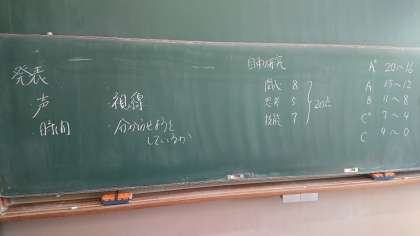 発表
・声
・時間
・視線
・分からせようと
しているか
自由研究
関心 8
思考 5
技能 7
20点
A° 20〜16
A 15〜12
B 11〜8
C° 7〜4
C 4〜0